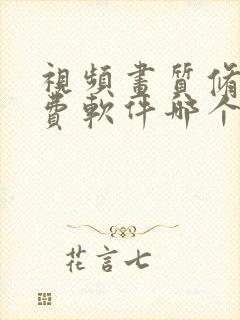 視頻畫質修
費軟件哪个
花言七